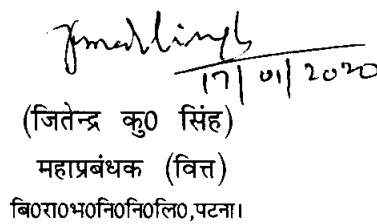 17/01/2020
(जितेन्द्र कु0 सिंह)
महाप्रबंधक (वित्त)
बि0रा0भ0नि0नि0लि0,पटना।